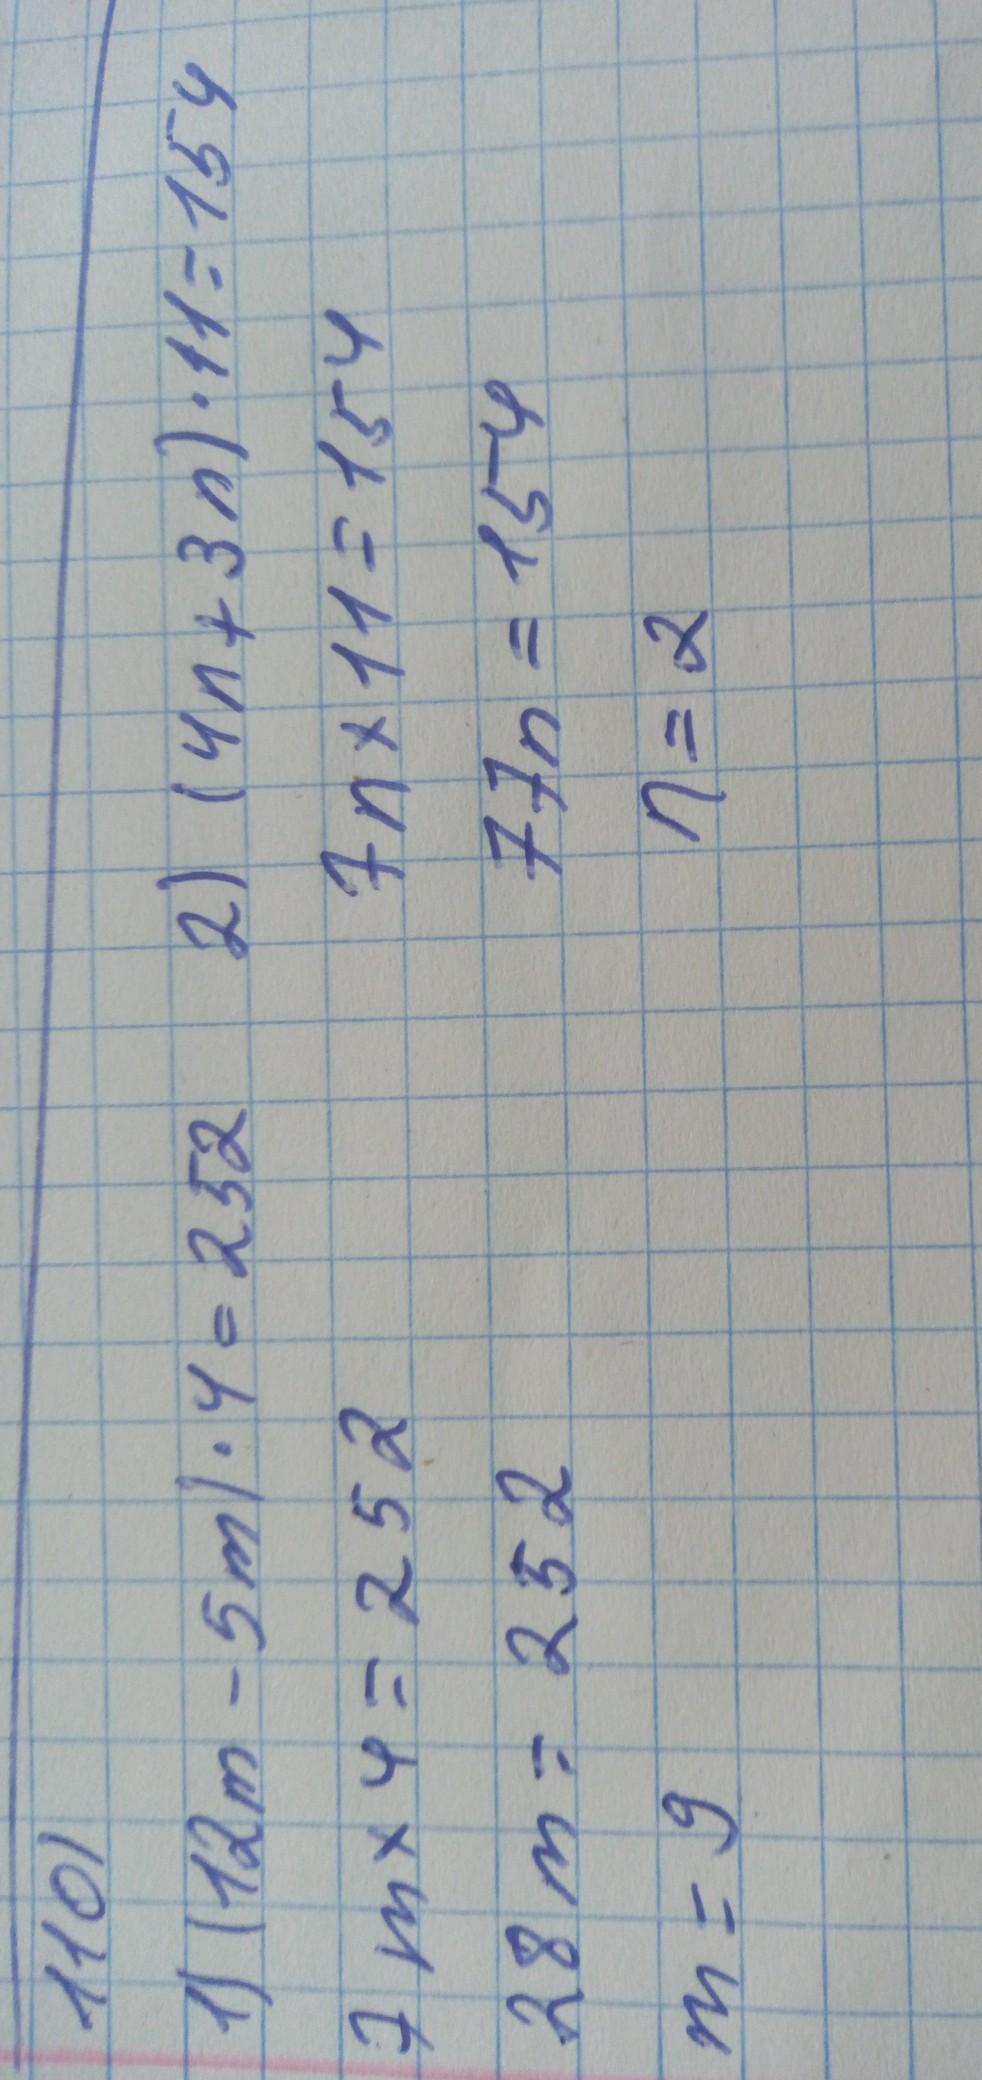 110)
1) (12m - 5m) · 4 = 252
7m × 4 = 252
28m = 252
m = 9
2) (4n + 3n) · 11 = 154
7n × 11 = 154
77n = 154
n = 2